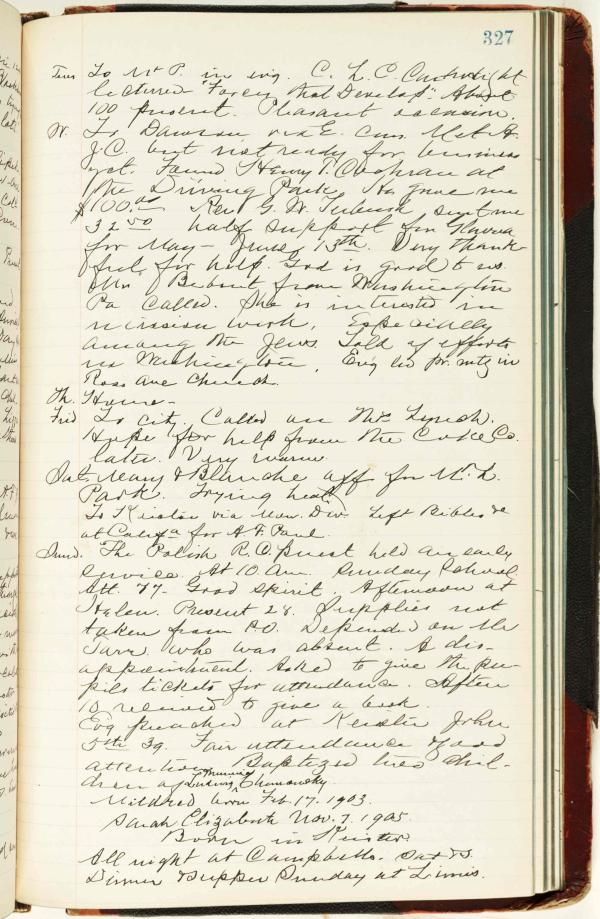 327
Tues To Mt P. in evg. C. L. C. at
lectured "Faces that Develop". About
100 present. Pleasant occasion.
W. To Dawson via E. Met A.
J.C. but not ready for business
yet. Found Henry T. Cochran at
the Driving Park. He gave me
$100.00 Rev G. W. sent me
32 50 half support for
for May – June 13th. Very thank-
ful for help. God is good to us.
Mrs from Washington
Pa called. She is interested in
mission work, Especially
among the Jews. Talk of efforts
in Washington. Evg led pr. mtg in
Ross Ave Church.
Th. Home –
Frid To city. Called on Thos Lynch.
Hope for help from the Coke Co.
later. Very warm.
Sat. Mary & Blanche off for Mt. L.
Park. Trying heat.
To Keister via Mon. Div. Left Bibles &c
at for A. F. Paul.
Sund. The Polish R.C. Priest held an early
service. At 10 Am. Sunday School
Att. 77. Good spirit. Afternoon at
Helen. Present 28. Supplies not
taken from P.O. Depended on Mr
who was absent. A dis-
appointment. Asked to give the pu-
pils tickets for attendance. After
10 received to give a book.
Evg preached at Keister John
5th 39. Fair attendance & good
attention. Baptized two chil-
dren of
Mildred born Feb. 17. 1903.
Sarah Elizabeth Nov. 7. 1905.
Born in Keister
All night at Campbells. Sat & S
Dinner & supper Sunday at